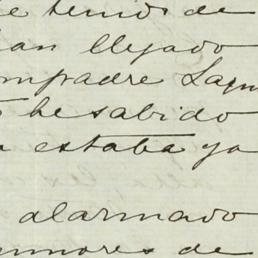 e tenido de
an llegado
ompadre Lagu
he sabido
a estaba ya
alarmado
umores de